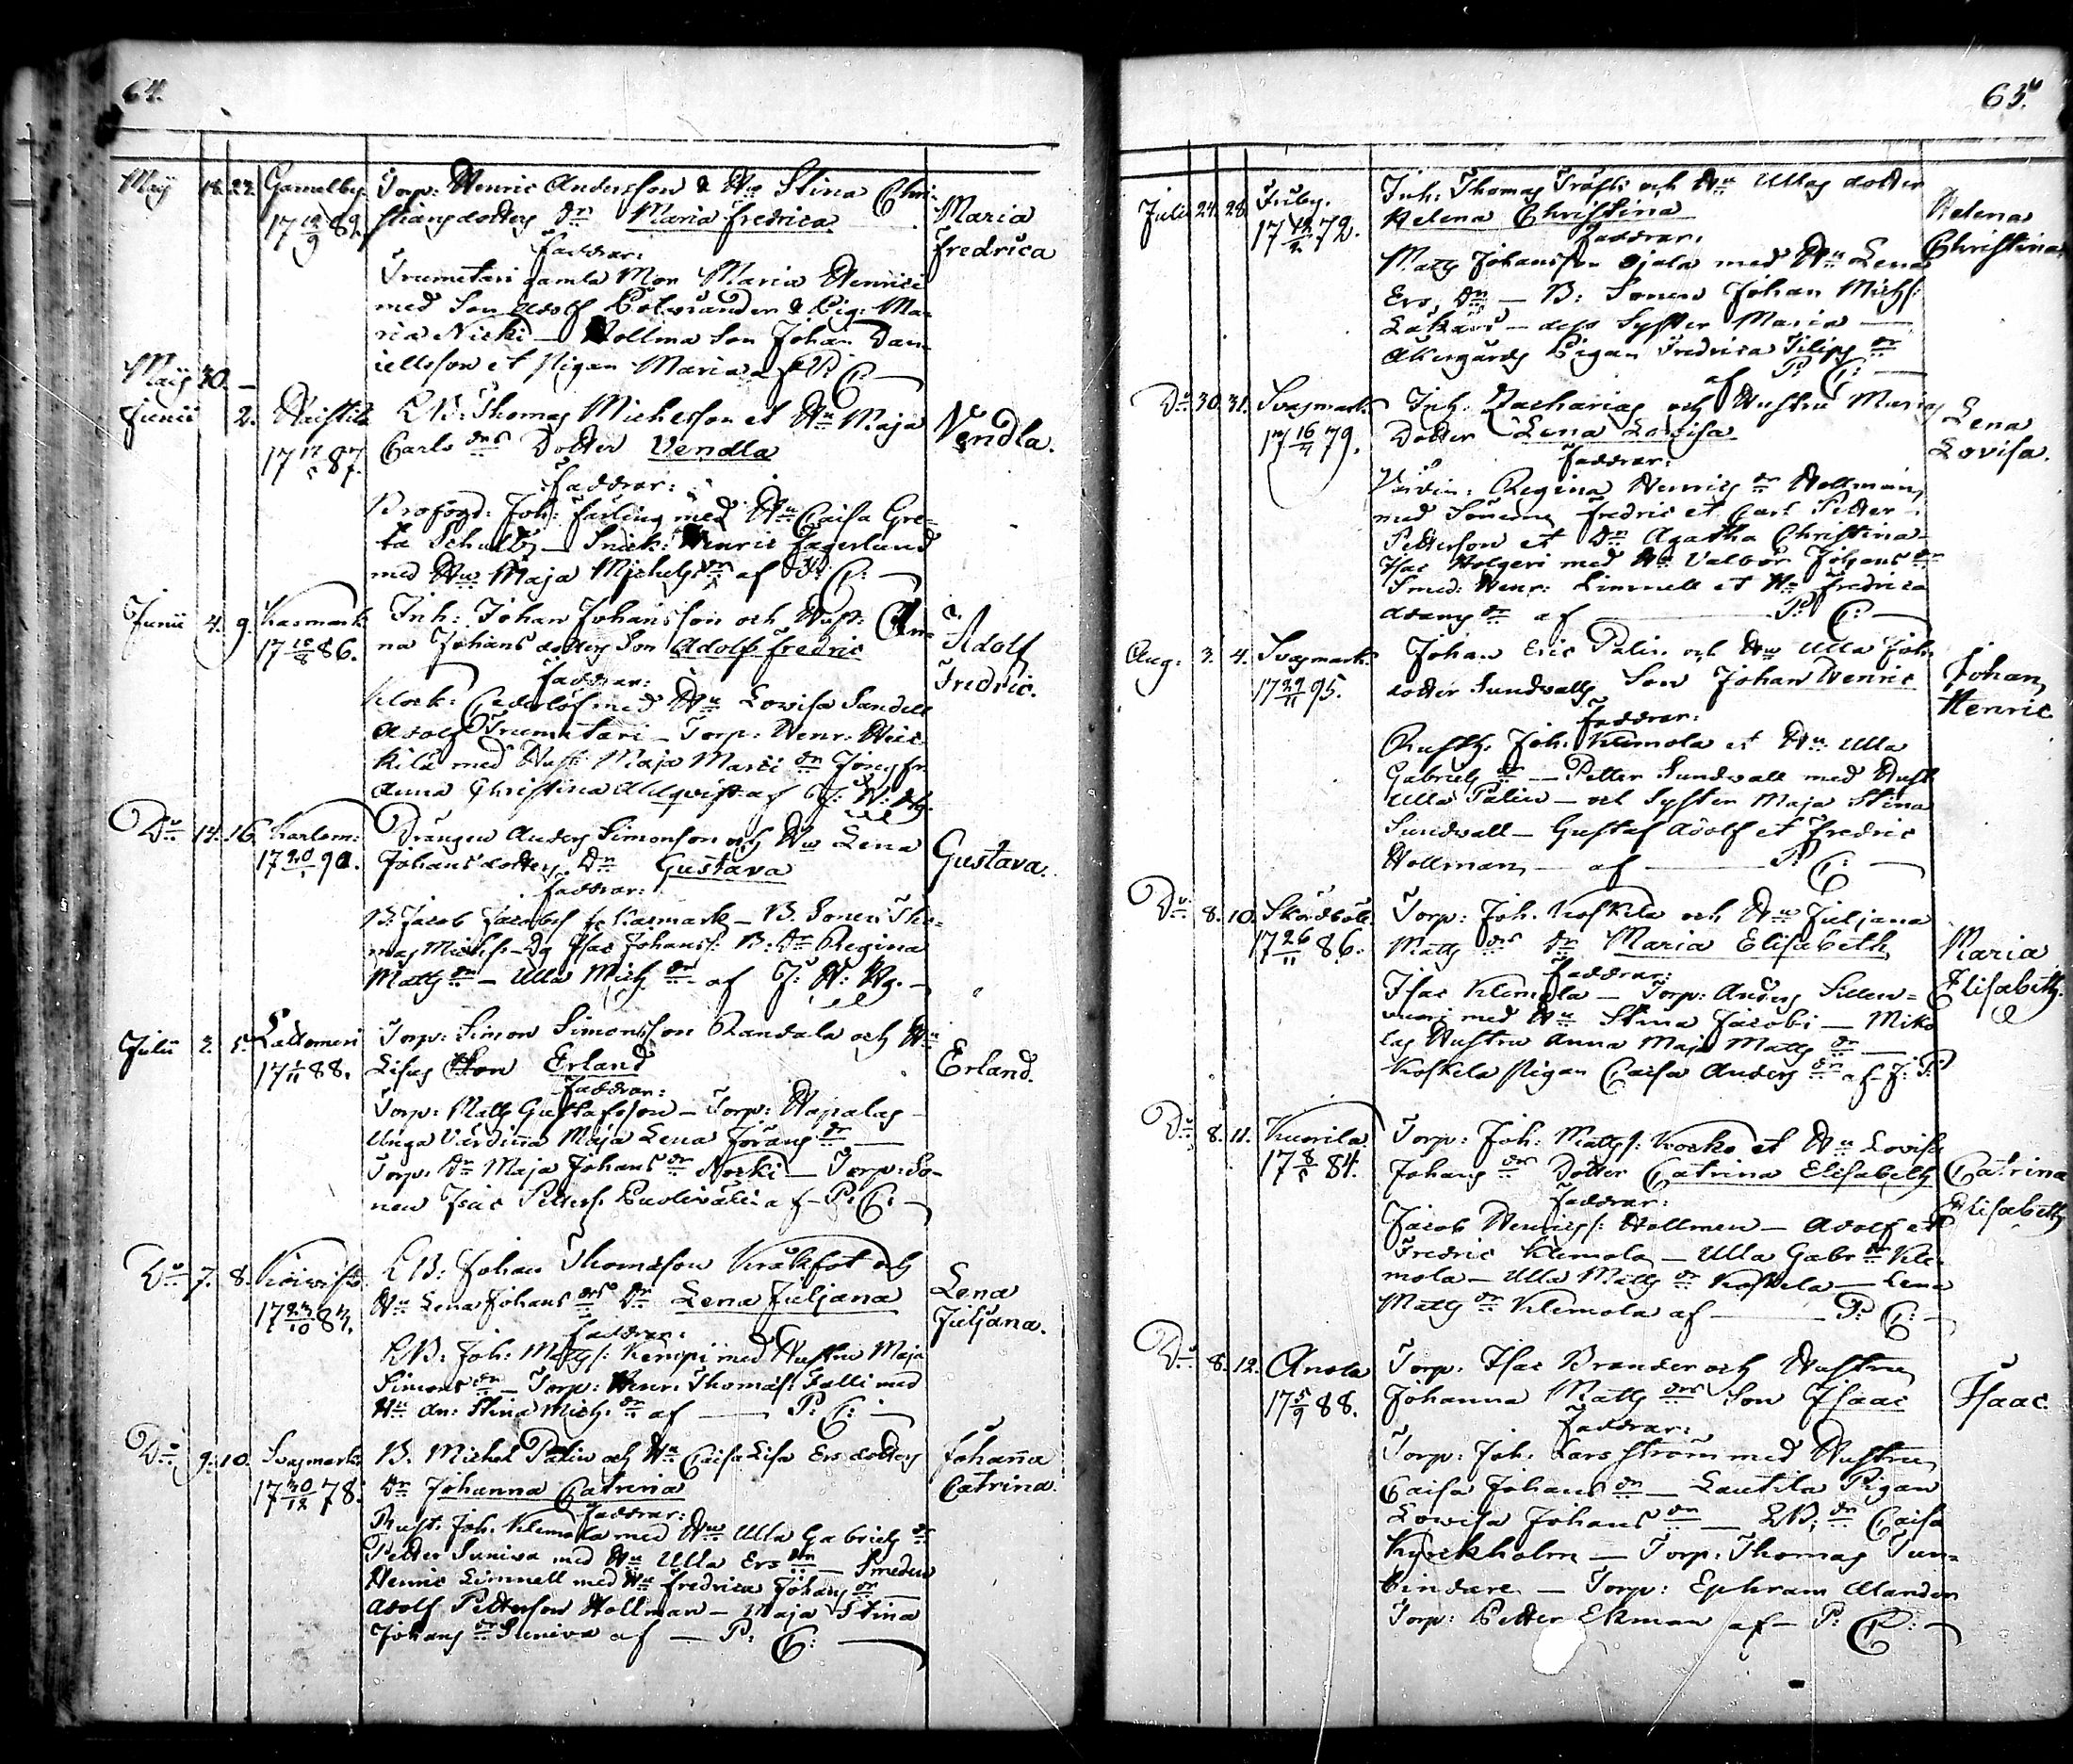 64.
Maij 18. 22. Gamelby Torp: Henric Andersson & Hu Stina Chri-
17 12/9 89. stiansdotters dr Maria Fredrica Maria Fredrica
faddrar:
Trumetari gamla Mor Maria Henrici
med Son Adolf & Pig: Ma-
ria Nicki — Hollma Son Johan Dan-
iellsson et Pigan Maria af P: C: —
Maij 30. —
Junii 2. LB: Thomas Michelsson et Hu Maja Vendla.
17 87. Carls drs Dotter Vendla
faddrar:
Profoss: Joh: Färling med Hu Caisa Gre-
ta Schultz — Snick: Henric Fagerlund
med Hu Maja Michels dr af P: C: —
Junii 4. 9. Karsmark Inh: Johan Johansson och Hust: An- Adolf
17 86. na Johans dotters Son Adolf Fredric Fredric.
faddrar:
Klock: Cederlöf med Hu Lovisa Sandell
Adolf Trumetari — Torp: Henr: Heic-
kilä med Hust: Maja Matts dr Jongfr.
Anna Christina Ahlqvist af J: H: Hg.
Do 14. 16. Karlsm: Drängen Anders Simonsson och Hu Lena Gustava.
17 20 90. Johansdotters Dr Gustava
faddrar:
B: Jacob Jacobss fr Karsmark — B. Sonen Tho-
mas Michs. — Do Isac Johanss: B: Dr Regina
Matts dr — Ulla Mich. dr af J: H: Hg. —
Julii 2. 5. Lattomeri Torp: Simon Simonsson Randala och Hu
17 1/11 88. Lisas Son Erland Erland.
faddrar:
Torp: Matts Gustafsson — Torp: Hapalas
Unga Värdinna Maja Lena Jörans dr —
Torp: Dr Maja Johans dr Norki — Torp: So-
nen Isac Petters. af P: C: —
Do 7. 8. Koivisto LB: Johan Thomasson Kråkfot och Lena
17 23/10 87. Hu Lena Johans drs Dr Lena Juljana Juljana.
faddrar:
LB: Joh: Matts: Kemppi med Hustru Maja
Simons dr — Torp: Henr: Thomas: Falli med
Hu An: Stina Mich. dr af — P: C: —
Do 9. 10. Svasmark: B. Michel Palin och Hu Caisa Lisa Ersdotters Johanna
17 30/12 78. Dr Johanna Catrina Catrina.
faddrar:
Rust: Joh. Klemola med Hu Ulla Gabriels dr
Petter Suniva med Hu Ulla Ers dr — Smeden
Henric Limnell med Hu Fredrica Johans dr —
Adolf Petterson Hollman — Maja Stina
Johans dr Suniva af — P: C: —
65.
Julii 24. 28. Friby. Inh: Thomas Träsk: och Hu Ullas dotter Helena
17 12/2 72. Helena Christina Christina
faddrar:
Matts Johansson Ojala med Hu Lena
Ers. Dr — B: Sonen Johan Michs:
— dess Syster Maria —
Åkergårds Pigan Fredrica Filips dr
af P: C: —
Do 30. 31. Svasmark: Inh. Zacharias och Hustru Marias Lena
17 16 79. Dotter Lena Lovisa Lovisa.
faddrar:
Värdin: Regina Henrics dr Hollmans
med Sönerne Fredric et Carl Petter
Petterson et Dr Agatha Christina —
Isac Holgeri med Hu Valbor Johans dr
Smed: Henr: Limnell et Hu Fredrica
Adams dr af — P: C: —
Aug: 3. 4. Svasmark: Johan Eric Palin och Hu Ulla Joh: Johan
17 29/11 95. dotter Sundvalls Son Johan Henric Henric
faddrar:
Rusth: Joh: Klemola et Hu: Ulla
Gabriels dr — Petter Sundvall med Hust
Ulla Palin — och Syster Maja Stina
Sundvall — Gustaf Adolf et Fredric
Hollman — af — P: C: —
Do 8. 10. Skördböle Torp: Joh. Koskela och Hu Juljana Maria
17 26/11 86. Matts drs dr Maria Elisabeth Elisabeth.
faddrar:
Isac Klemola — Torp: Anders Sillen-
vuori med Hu Stina Jacobi — Miko-
las Hustru Anna Maja Matts dr —
Koskela Pigan Caisa Anders dr af J: T:
Do 8. 11. Kuorila Torp: Joh: Matts: Kocko et Hu Lovisa
17 8 84. Johans drs Dotter Catrina Elisabeth Catrina Elisabeth
faddrar:
Jacob Henrics: Hollmen — Adolf et
Fredric Klemola — Ulla Gabr dr Kle-
mola — Ulla Matts dr Koskela — Lena
Matts dr Klemola af — P: C: —
Do 8. 12. Anola Torp. Isac Brander och Hustru Isaac
17 5/9 88. Johanna Matts drs Son Isaac
faddrar:
Torp: Joh: Larsström med Hustru
Caisa Johans dr — Lautila Pigan
Lovisa Johans dr — LB: dr Caisa
Kyrckholm — Torp: Thomas Tun-
bindare — Torp: Ephram Alander
Torp: Petter Ekman af — P: C: —